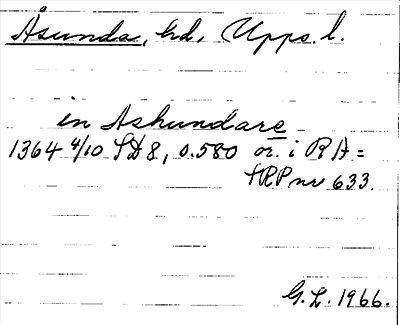 Åsunda, hd, Upps. l.
in Ashundare
1364 4/10 SD8, o.580 or. i RA =
RPP nr 633.
G.L. 1966.